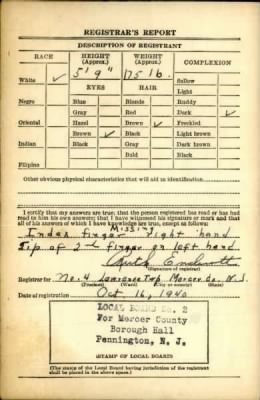 REGISTRAR'S REPORT
DESCRIPTION OF REGISTRANT
RACE
HEIGHT
(Approx.)
WEIGHT
(Approx.)
COMPLEXION
White ✓
5' 9"
175 lb.
Sallow
EYES
HAIR
Light
Negro
Blue
Blonde
Ruddy
Gray
Red
Dark ✓
Oriental
Hazel
Brown ✓
Freckled
Brown ✓
Black
Light brown
Indian
Black
Gray
Dark brown
Bald
Black
Filipino
Other obvious physical characteristics that will aid in identification
I certify that my answers are true; that the person registered has read or has had
read to him his own answers; that I have witnessed his signature or mark and that
all of his answers of which I have knowledge are true, except as follows:
Missing
Index finger right hand
Tip of 2nd finger on left hand
Ruth
(Signature of registrar)
Registrar for No. 4 Lawrence Twp Mercer Co. N.J.
(Precinct) (Ward) (City or county) (State)
Date of registration Oct 16, 1940
LOCAL BOARD No. 2
For Mercer County
Borough Hall
Pennington, N. J.
(STAMP OF LOCAL BOARD)
(The stamp of the Local Board having jurisdiction of the registrant
shall be placed in the above space.)